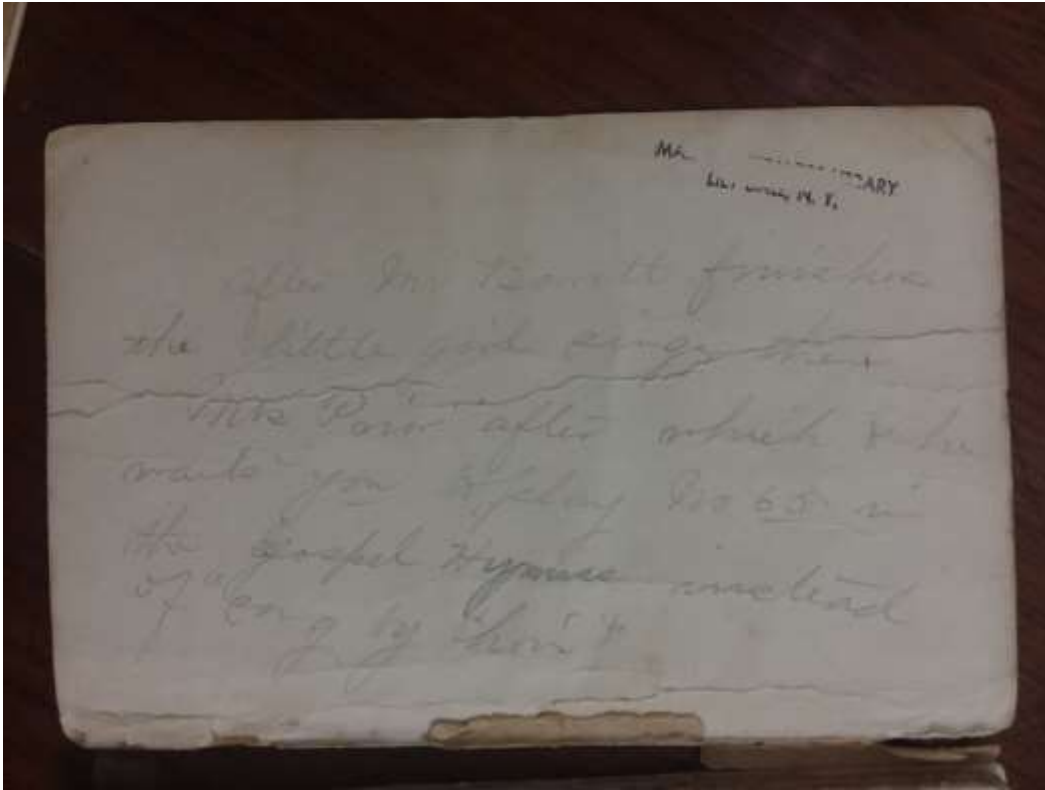 ARY
N. Y.
after Mr Barrett finishes
the little girl sings then
Mrs after which he
wants you to play No 65 in
the Gospel Hymns instead
of